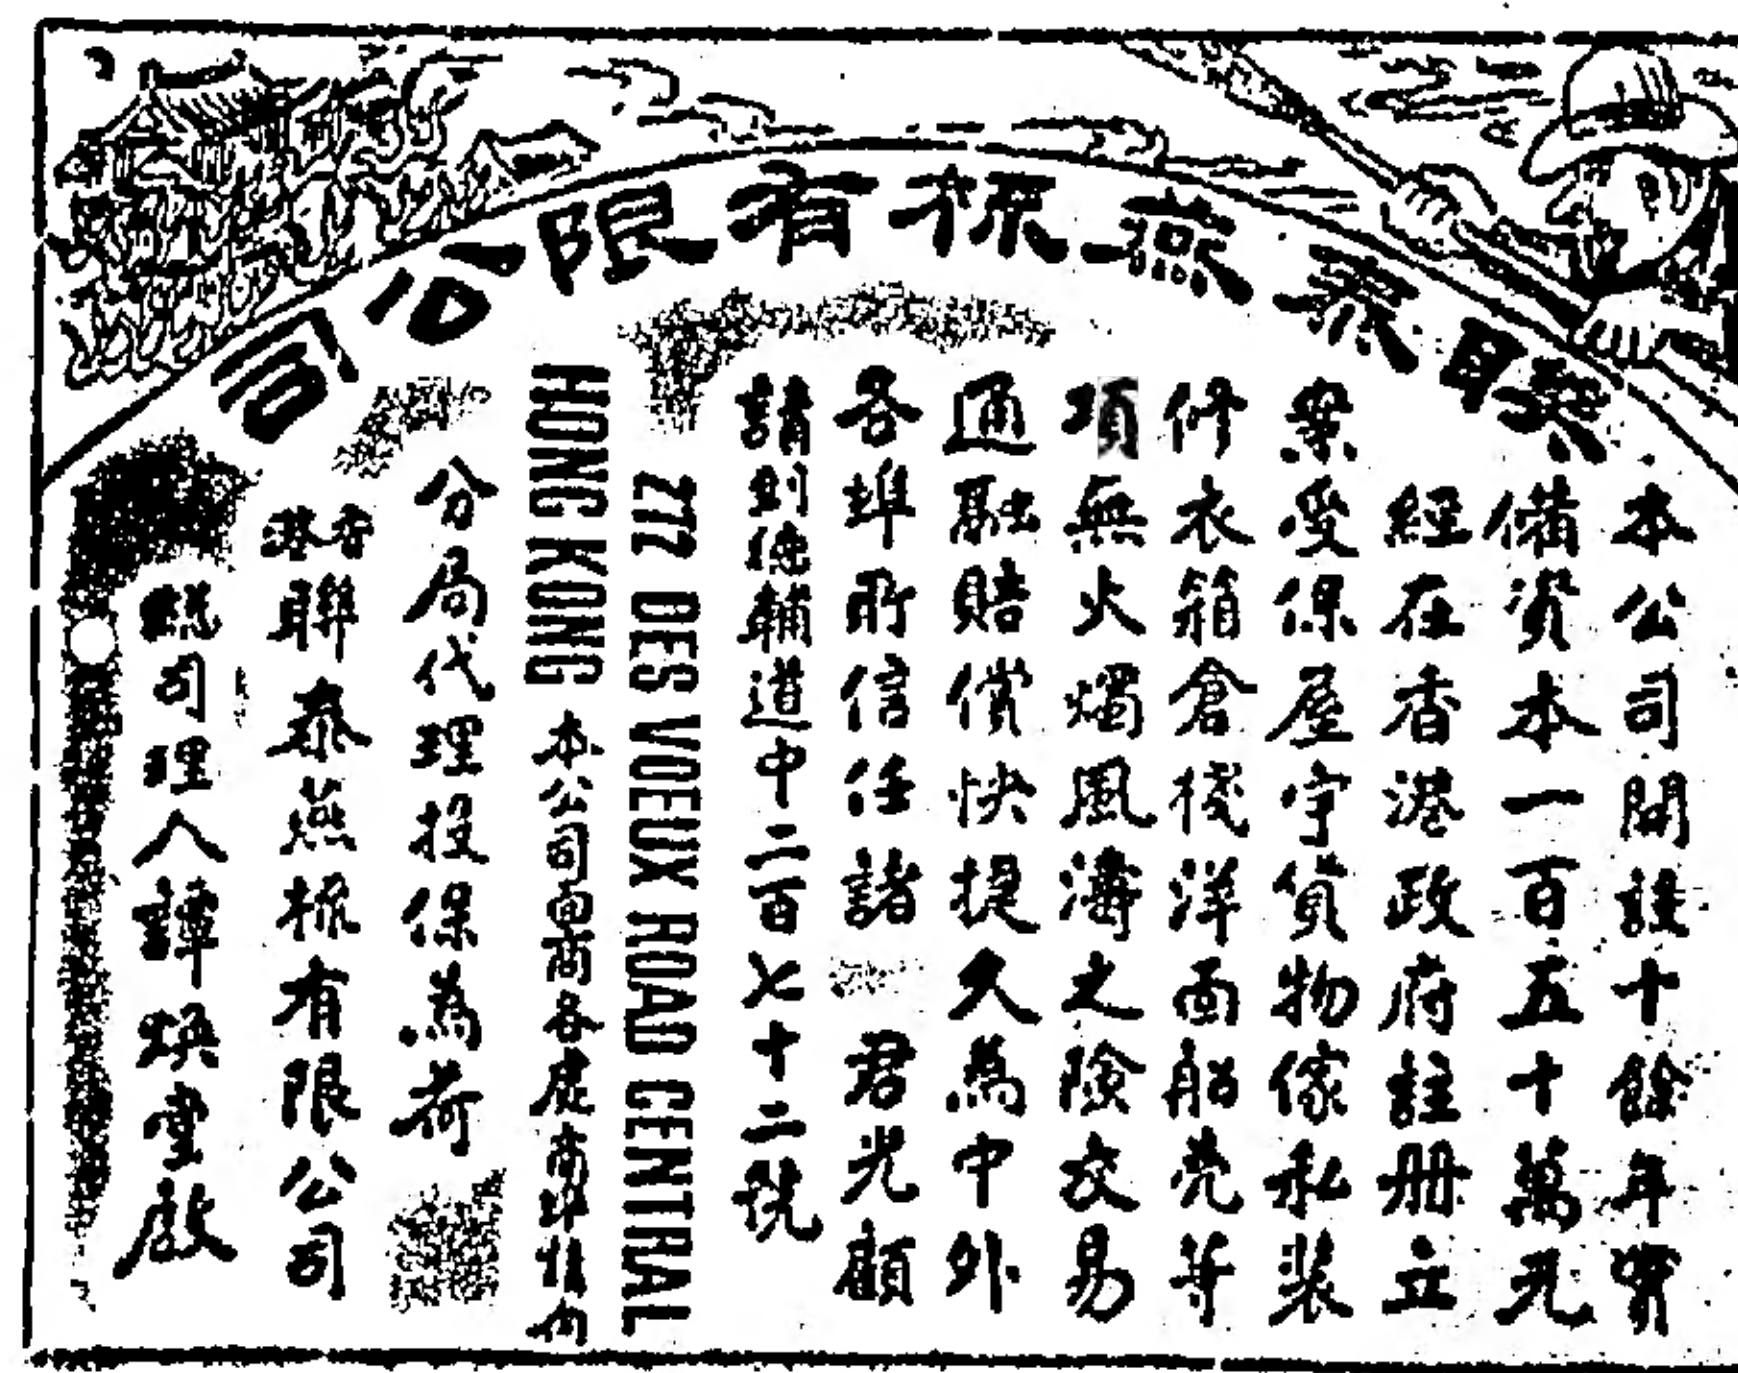 聯泰燕梳有限公司
本公司開設十餘年實
備資本一百五十萬元
經在香港政府註册立
案受保屋宇貨物傢私裝
修衣箱倉棧洋面船壳等
項無火燭風濤之險交易
通融賠償快捷久為中外
各埠所信任諸 君光顧
請到德輔道中二百七十二號
272 DES VOEUX ROAD CENTRAL
HONG KONG 本公司 各處商埠
分局代理投保為荷
香港聯泰燕梳有限公司
總司理人譚煥堂啟